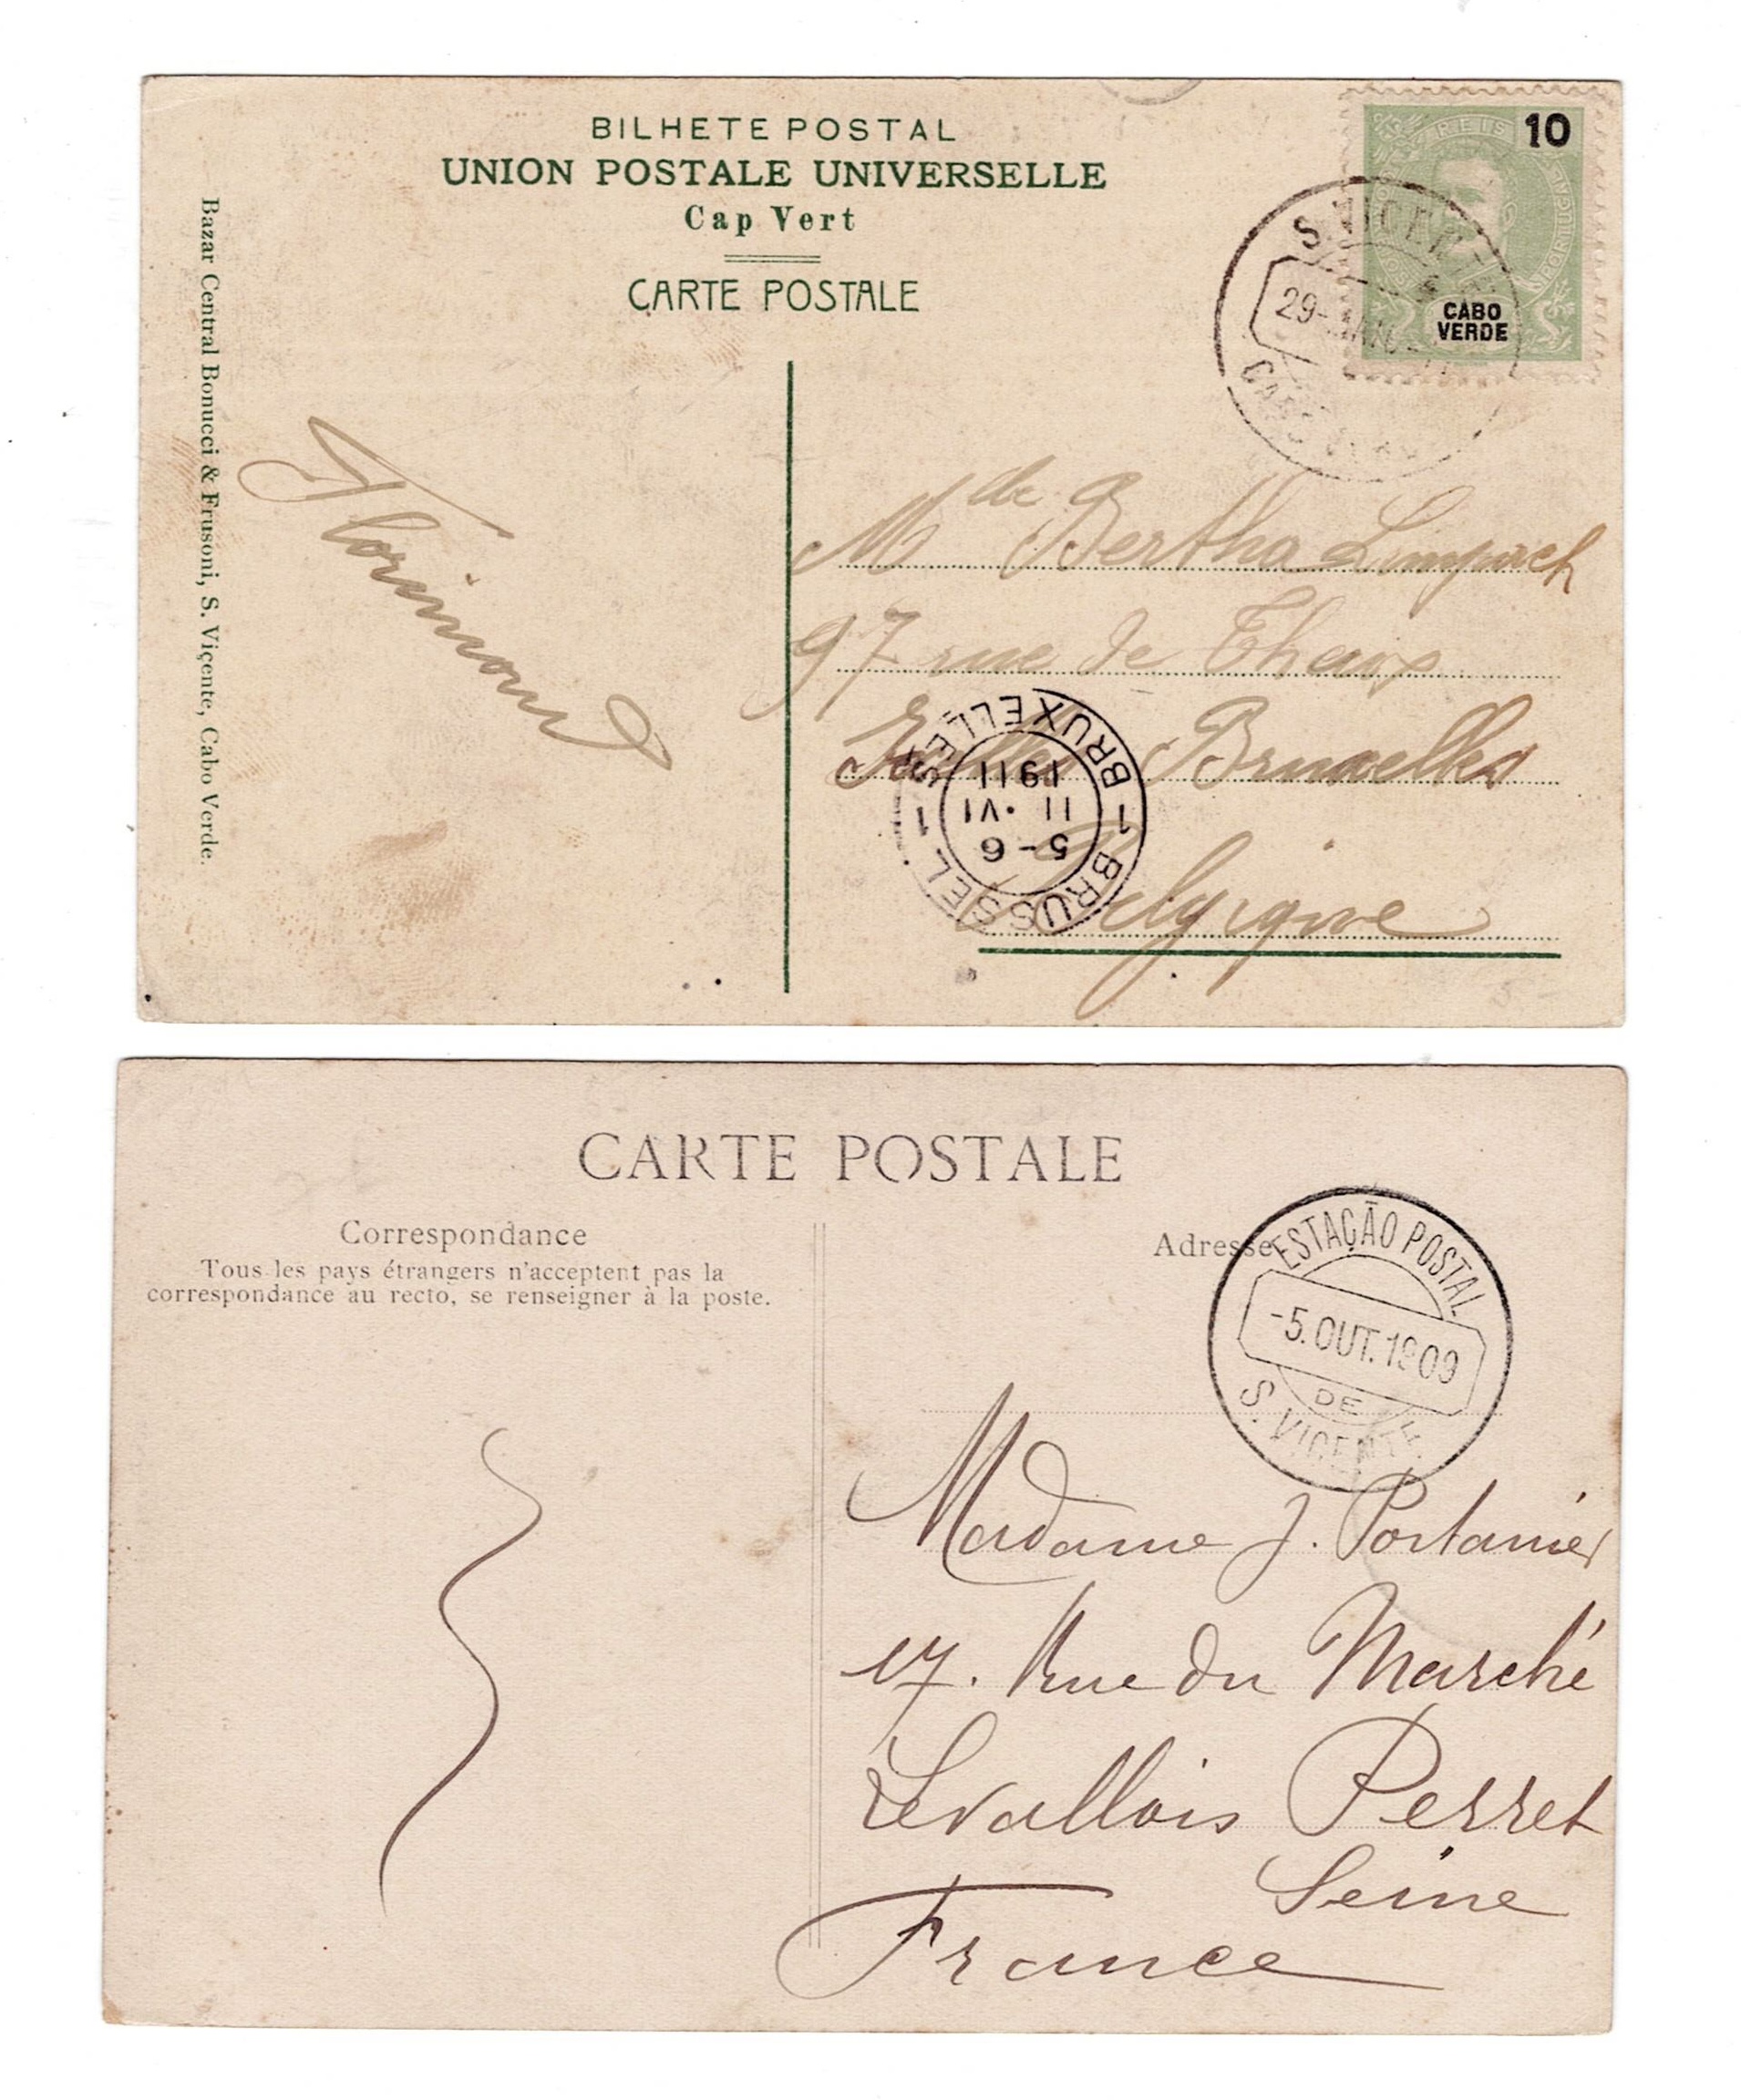 BILHETE POSTAL
UNION POSTALE UNIVERSELLE
Cap Vert
CARTE POSTALE
Bazar Central Bonucci & Frusoni, S. Viçente, Cabo Verde.
REIS
10
PORTUGAL
CABO
VERDE
S. VICENTE
29-
CABO VERDE
Florimond
Mde Bertha
97 rue de
Ixelles Bruxelles
Belgique
1 BRUXELLES 1
BRUSSEL
5-6
11 · VI
1911
CARTE POSTALE
Correspondance
Tous les pays étrangers n'acceptent pas la
correspondance au recto, se renseigner à la poste.
Adresse
ESTAÇÃO POSTAL
-5.OUT.1909
DE
S. VICENTE
Madame J. Portanier
17. Rue du Marché
Levallois Perret
Seine
France